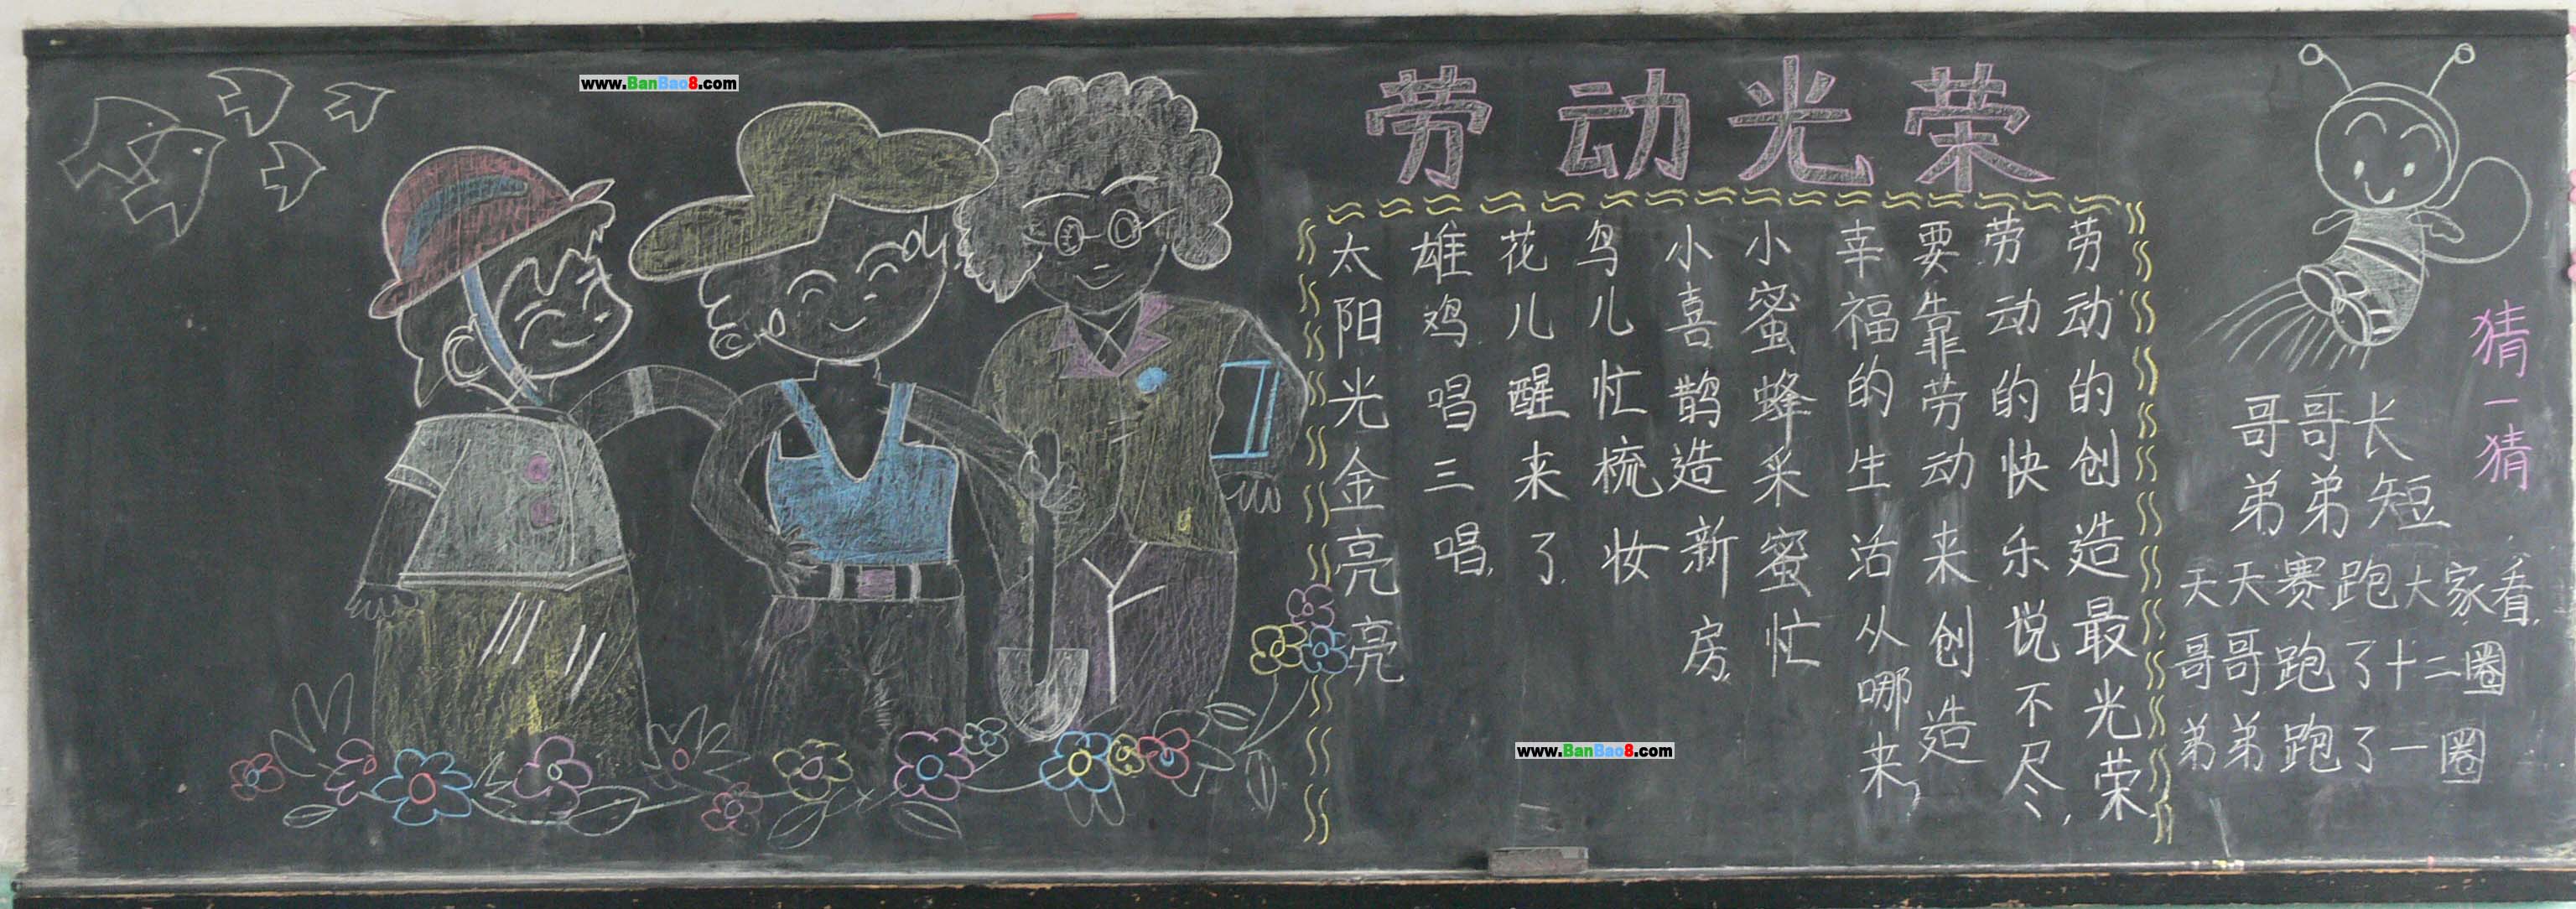 www.BanBao8.com
劳动光荣
太阳光金亮亮
雄鸡唱三唱,
花儿醒来了.
鸟儿忙梳妆
小喜鹊造新房,
小蜜蜂采蜜忙
幸福的生活从哪来,
要靠劳动来创造
劳动的快乐说不尽,
劳动的创造最光荣.
猜一猜
哥哥长
弟弟短
天天赛跑大家看,
哥哥跑了十二圈
弟弟跑了一圈
www.BanBao8.com